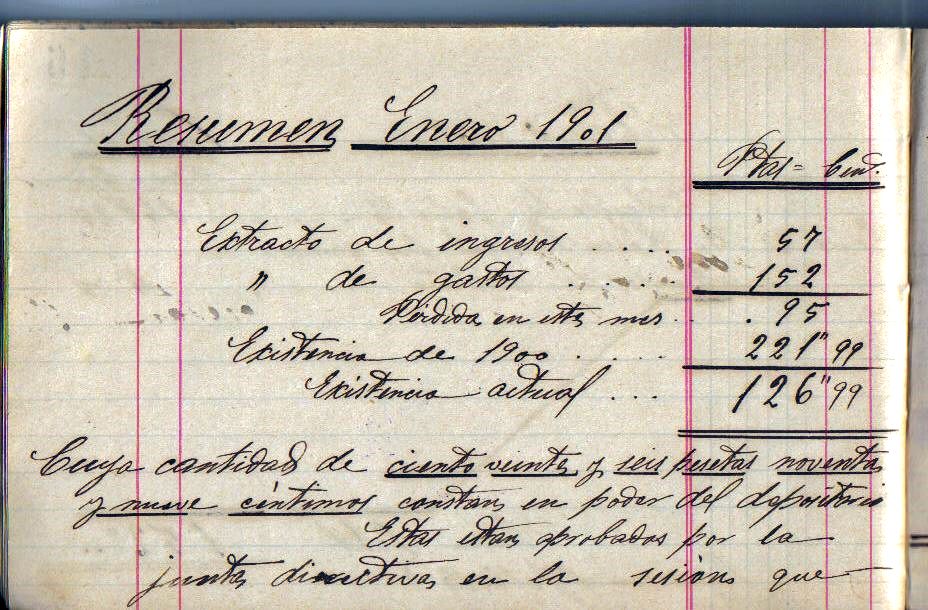 Resumen Enero 1901
Ptas = Cen.
Extracto de ingresos . . . . . 57
" de gastos . . . . . 152
Pérdida en este mes . . . 95
Existencia de 1900 . . . . . 221" 99
Existencia actual . . . 126" 99
Cuya cantidad de ciento veinte y seis pesetas noventa
y nueve céntimos constan en poder del depositario
Estas estan aprobadas por la
junta directiva en la sesión que